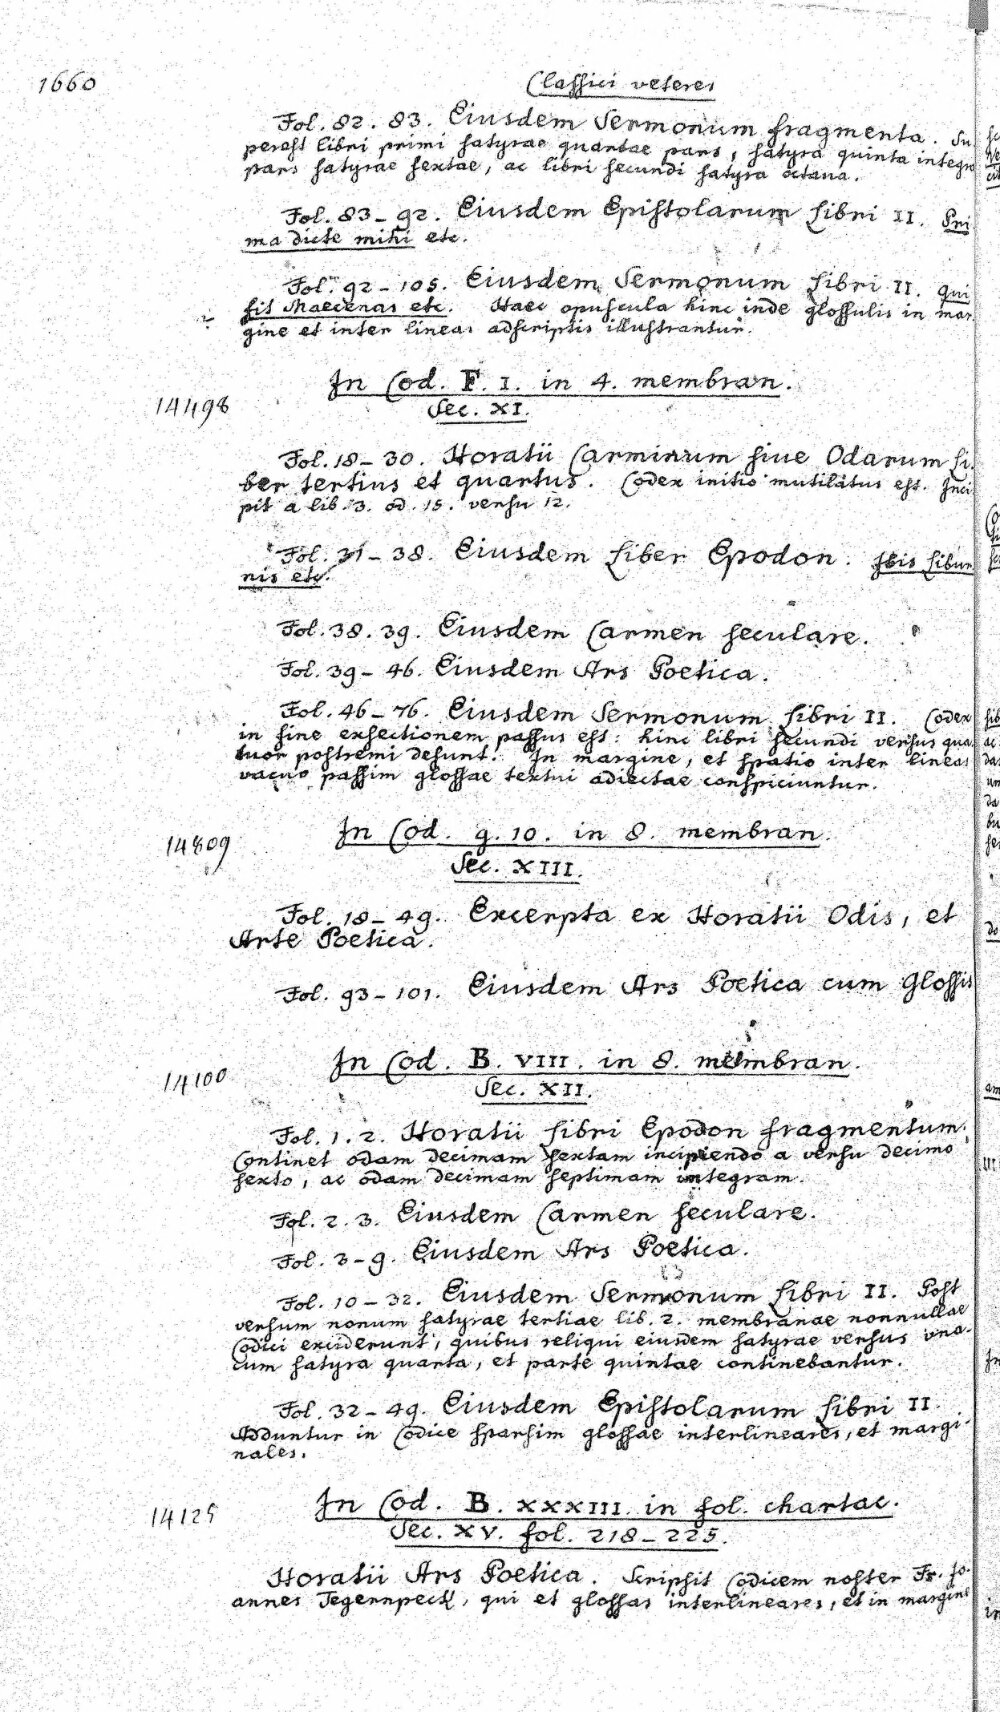 1660
Classici veteres
Fol. 82. 83. Eiusdem Sermonum fragmenta. Su
perest libri primi satyrae quartae pars, satyra quinta integra
pars satyrae sextae, ac libri secundi satyra octava.
Fol. 83-92. Eiusdem Epistolarum Libri II. Pri
ma dicte mihi etc.
Fol. 92-105. Eiusdem Sermonum Libri II. Qui
fit Maecenas etc. Haec opuscula hinc inde glossulis in mar
gine et inter lineas adscriptis illustrantur.
In Cod. F. I. in 4. membran.
14498
Sec. XI.
Fol. 18-30. Horatii Carminum sive Odarum Li
ber tertius et quartus. Codex initio mutilatus est. Inci
pit a lib. 3. od. 15. versu 12.
Fol. 31-38. Eiusdem Liber Epodon. Ibis Libur
nis etc.
Fol. 38. 39. Eiusdem Carmen seculare.
Fol. 39-46. Eiusdem Ars Poetica.
Fol. 46-76. Eiusdem Sermonum Libri II. Codex
in fine exsectionem passus est: hinc libri secundi versus qua
tuor postremi desunt. In margine, et spatio inter lineas
vacuo passim glossae textui adiectae conspiciuntur.
In Cod. g. 10. in 8. membran.
14809
Sec. XIII.
Fol. 18-49. Excerpta ex Horatii Odis, et
Arte Poetica.
Fol. 93-101. Eiusdem Ars Poetica cum Glossis
In Cod. B. VIII. in 8. membran.
14100
Sec. XII.
Fol. 1. 2. Horatii Libri Epodon fragmentum.
Continet odam decimam sextam incipiendo a versu decimo
sexto, ac odam decimam septimam integram.
Fol. 2. 3. Eiusdem Carmen seculare.
Fol. 3-9. Eiusdem Ars Poetica.
Fol. 10-32. Eiusdem Sermonum Libri II. Post
versum nonum satyrae tertiae lib. 2. membranae nonnullae
Codici exciderunt, quibus reliqui eiusdem satyrae versus una
cum satyra quarta, et parte quintae continebantur.
Fol. 32-49. Eiusdem Epistolarum Libri II.
Adduntur in Codice sparsim glossae interlineares, et margi
nales.
In Cod. B. XXXIII. in fol. chartac.
14125
Sec. XV. fol. 218-225.
Horatii Ars Poetica. Scripsit Codicem noster Fr. Jo
annes Tegernpeck, qui et glossas interlineares, et in margine